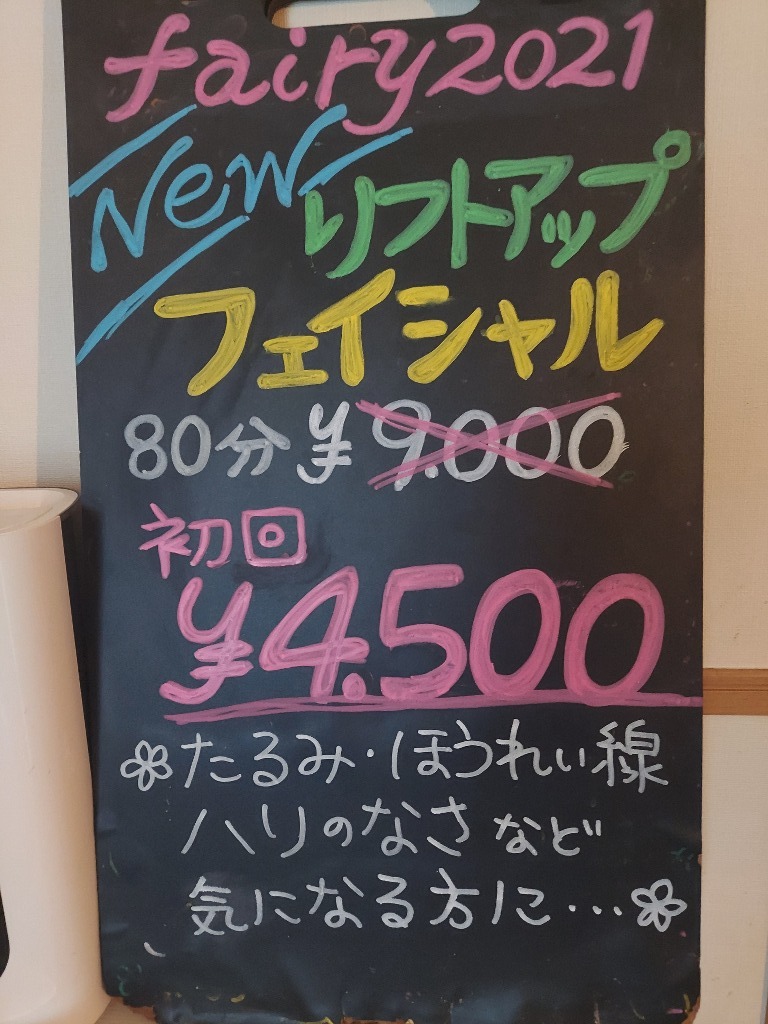 fairy2021
New リフトアップ
フェイシャル
80分 ¥9.000
初回
¥4.500
たるみ・ほうれい線
ハリのなさなど
気になる方に…